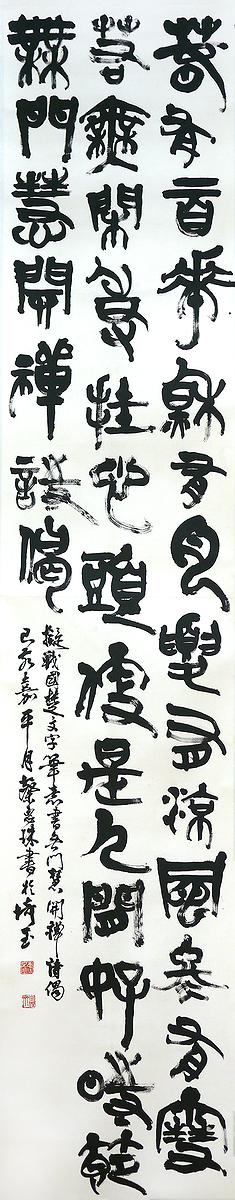 春有百花秋有月夏有涼風冬有雪
若無閑事挂心頭便是人間好時節
無門慧開禪詩偈
擬戰國楚文字筆意書无門慧開禪詩偈
己亥嘉平月珠書於埼玉